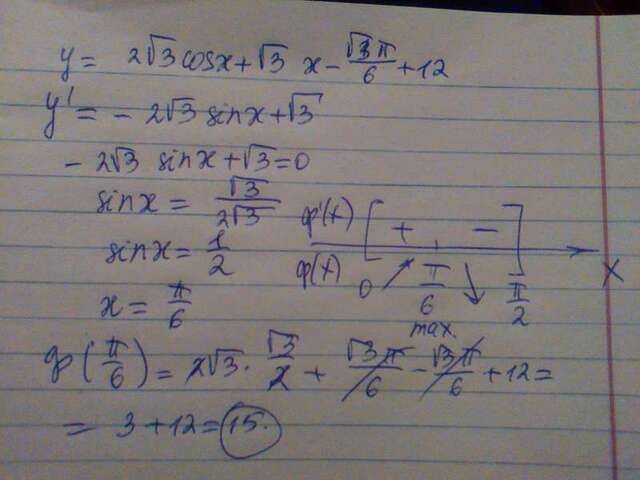 y = 2√3 cosx + √3 x - √3π/6 + 12
y' = - 2√3 sinx + √3
- 2√3 sinx + √3 = 0
sinx = √3/2√3
sinx = 1/2
x = π/6
φ'(x) [ + - ]
φ(x) 0 ↗ π/6 ↘ π/2 x
max.
φ(π/6) = 2√3 · √3/2 + √3π/6 - √3π/6 + 12 =
= 3 + 12 = 15.